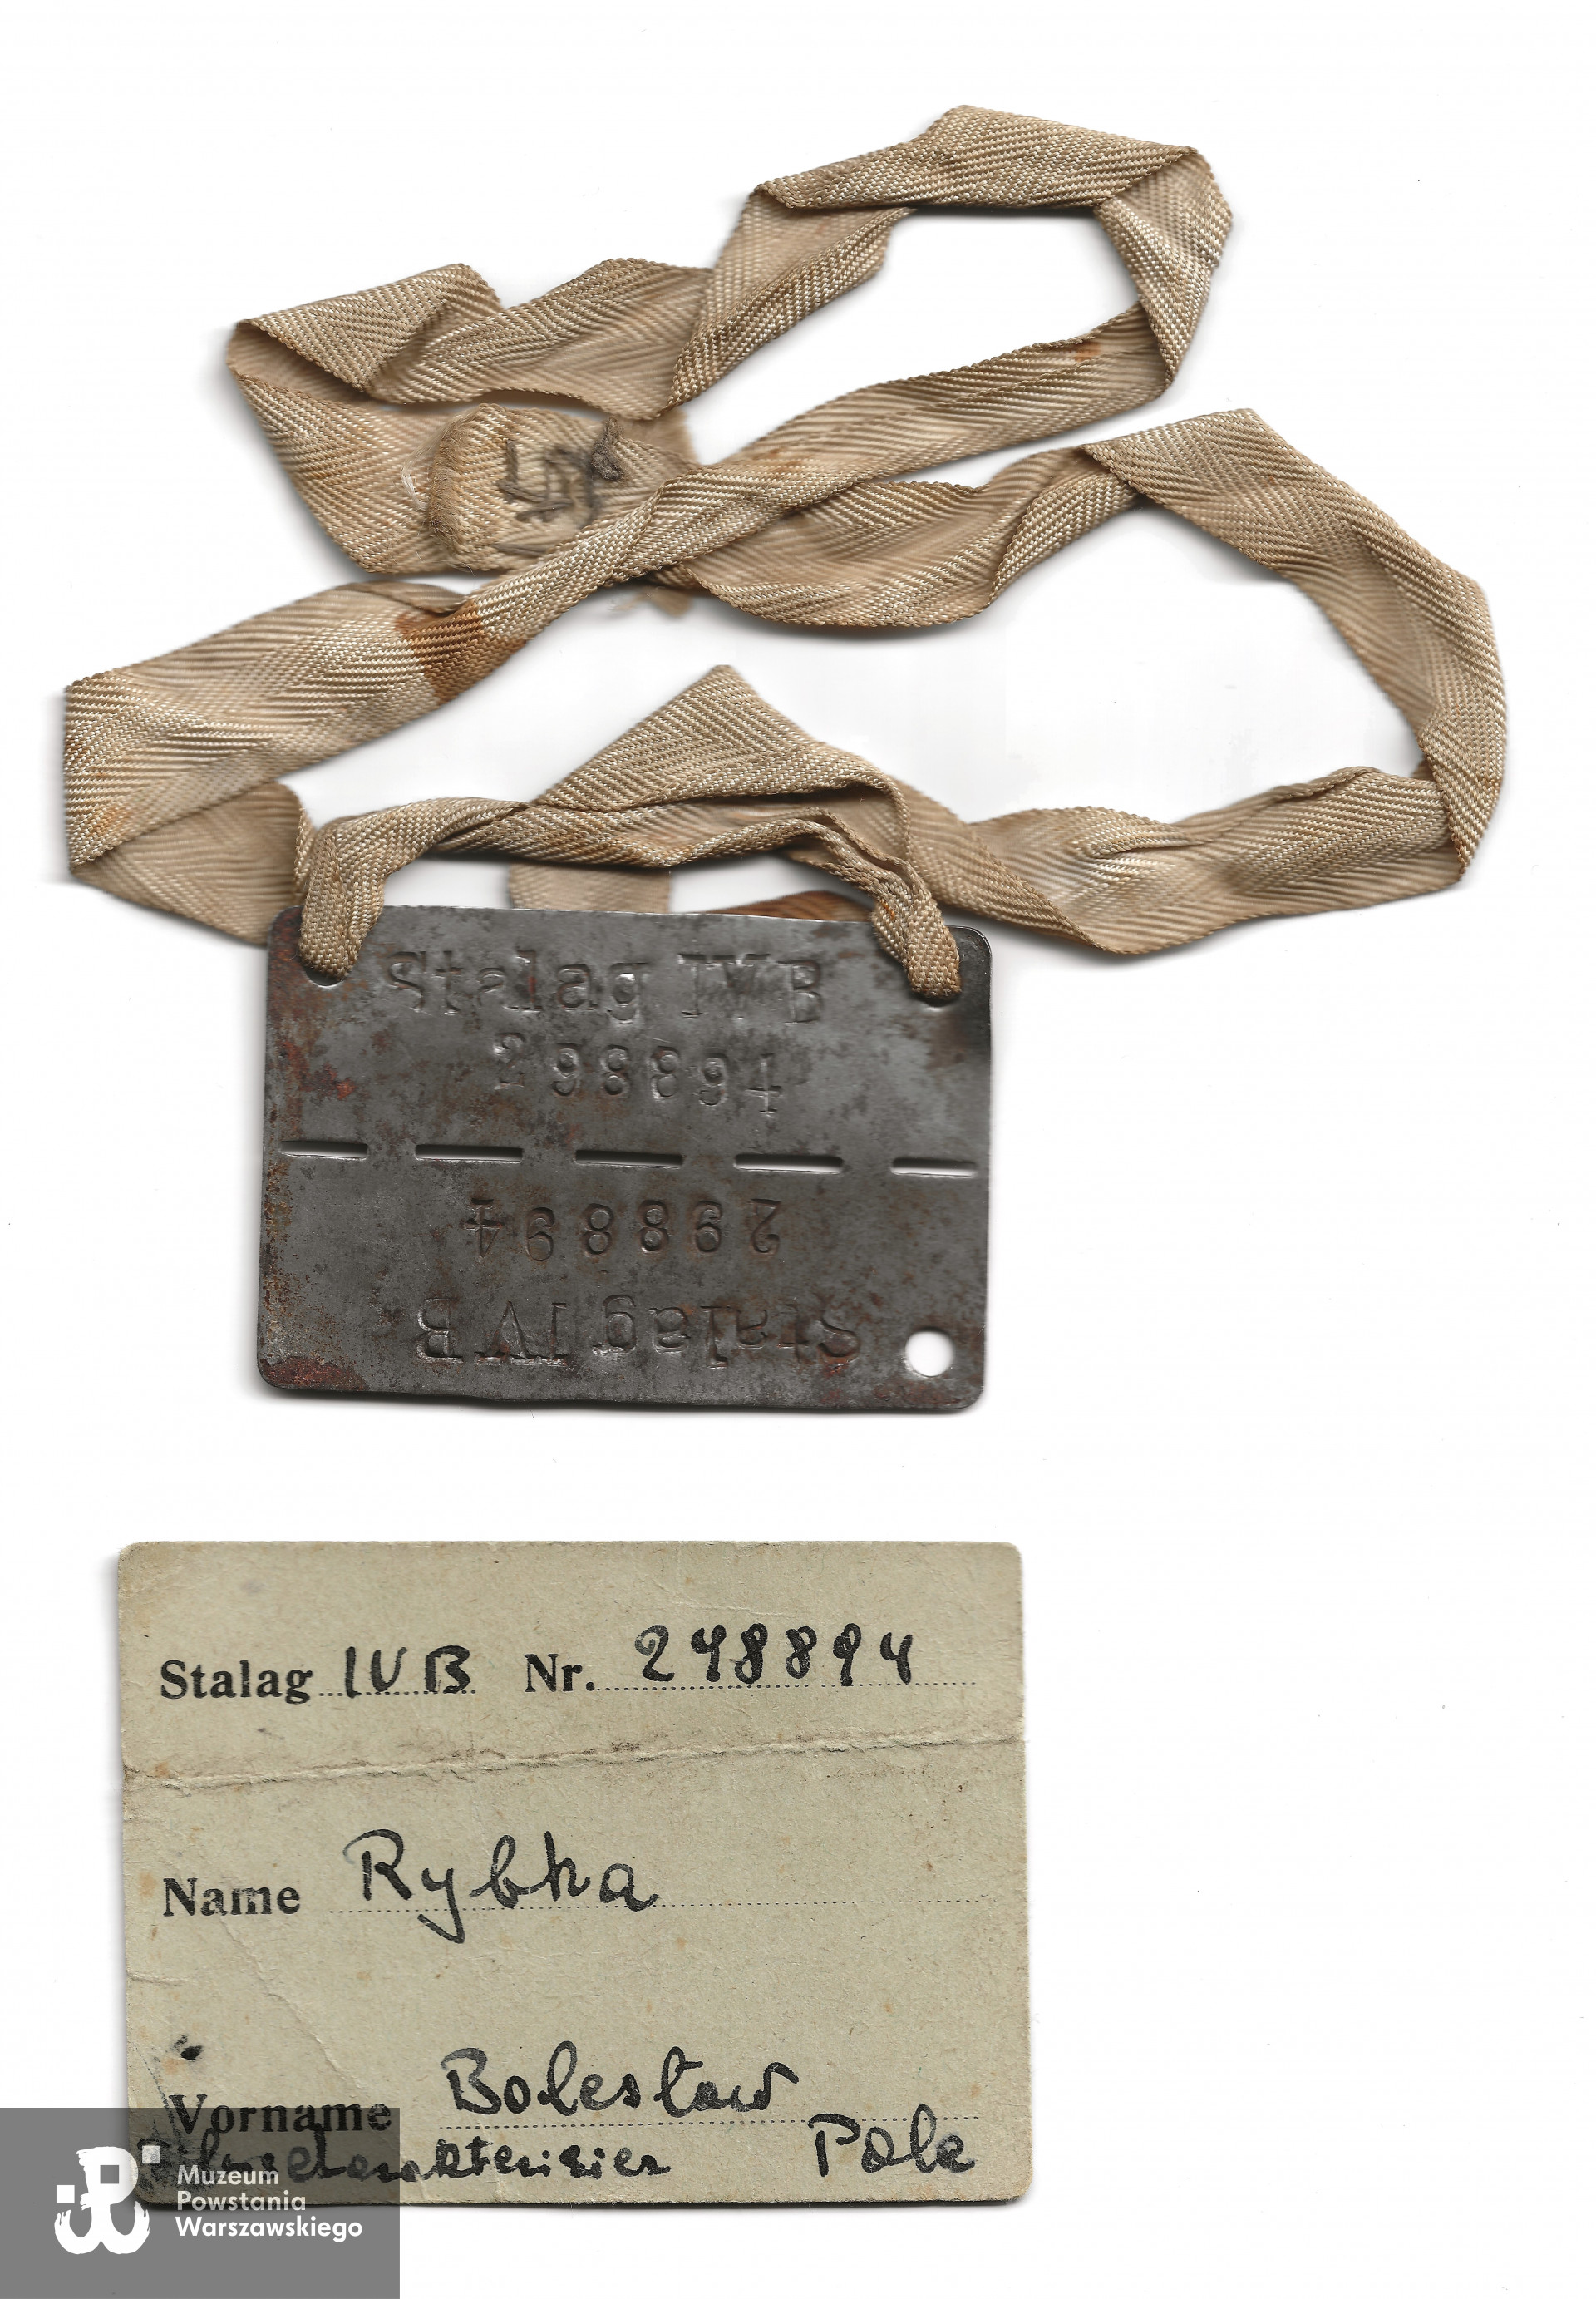 Stalag IV B
298894
298894
Stalag IV B
Stalag IV B Nr. 298894
Name Rybka
Vorname Bolesław
Pole
Muzeum
Powstania
Warszawskiego